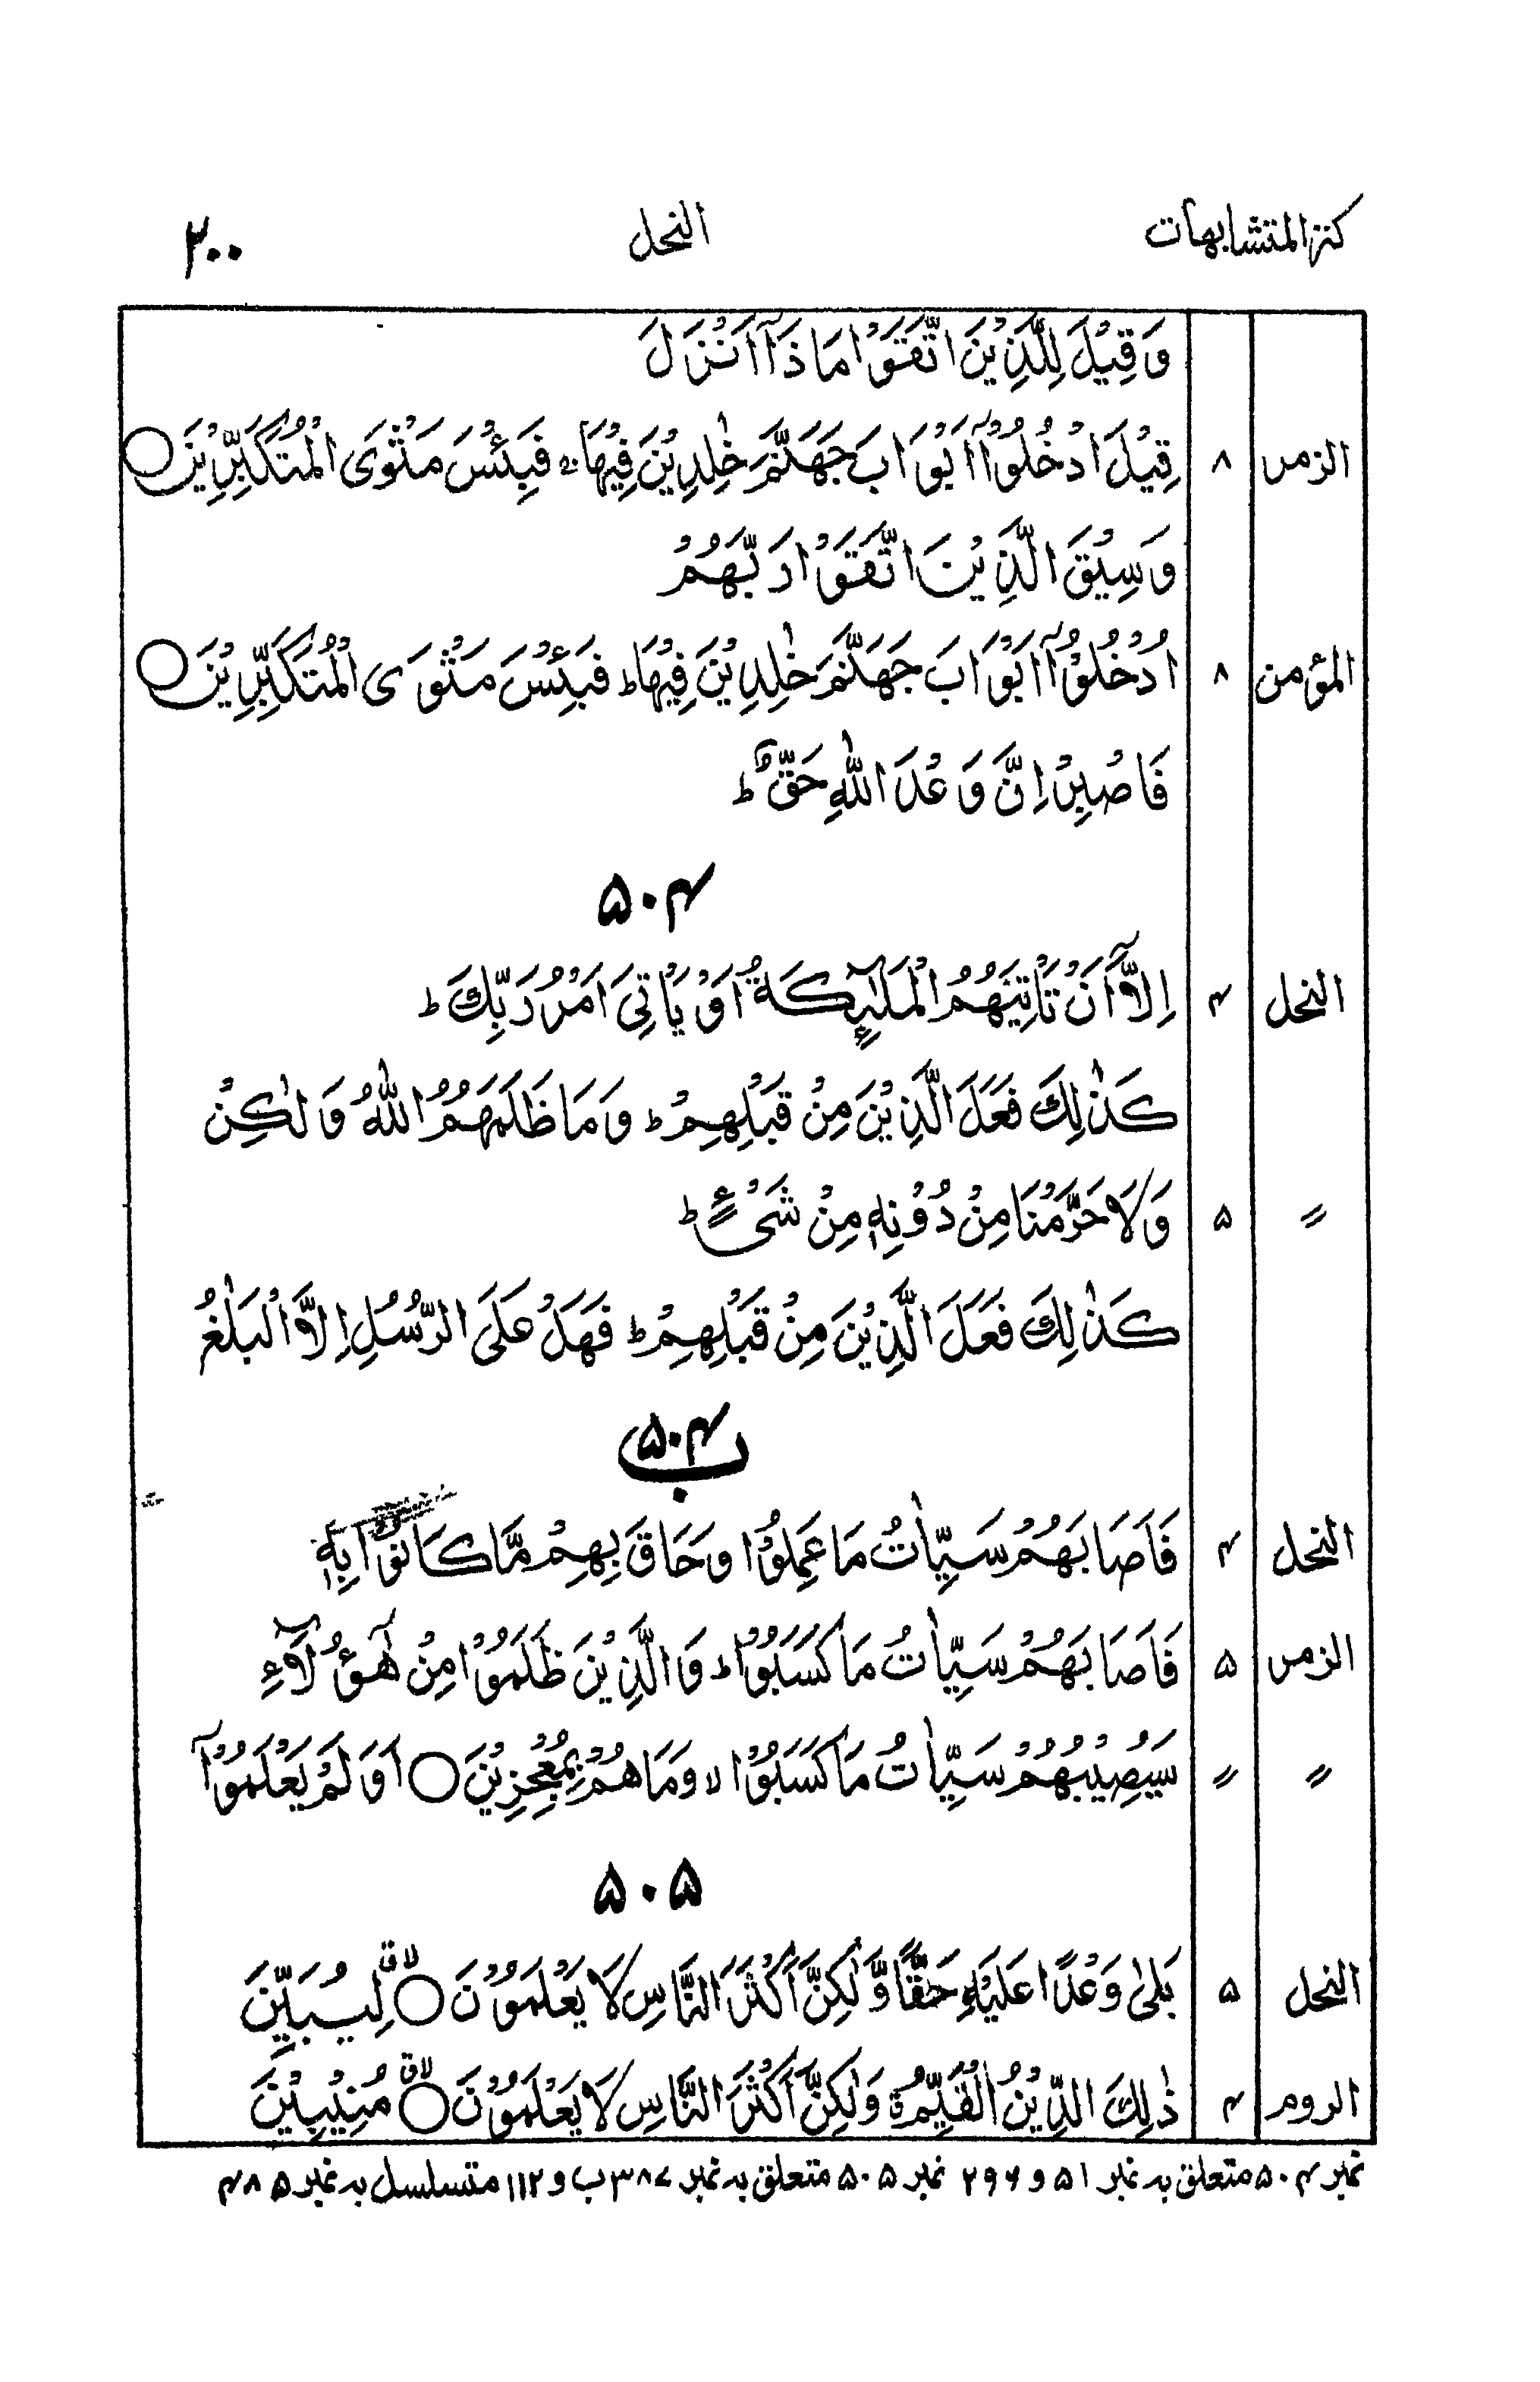 کنز المتشابہات النحل ۲۰۰
وَقِيْلَ لِلَّذِيْنَ اتَّقَوْا مَاذَآ اَنْزَلَ
الزمر ۸ قِيْلَ ادْخُلُوْٓا اَبْوَابَ جَهَنَّمَ خٰلِدِيْنَ فِيْهَا ۚ فَبِئْسَ مَثْوَى الْمُتَكَبِّرِيْنَ ○
وَسِيْقَ الَّذِيْنَ اتَّقَوْا رَبَّهُمْ
المؤمن ۸ اُدْخُلُوْٓا اَبْوَابَ جَهَنَّمَ خٰلِدِيْنَ فِيْهَا ؕ فَبِئْسَ مَثْوَى الْمُتَكَبِّرِيْنَ ○
فَاصْبِرْ اِنَّ وَعْدَ اللّٰهِ حَقٌّ ؕ
۵۰۴
النحل ۴ اِلَّآ اَنْ تَاْتِيَهُمُ الْمَلٰٓئِكَةُ اَوْ يَاْتِيَ اَمْرُ رَبِّكَ ؕ
كَذٰلِكَ فَعَلَ الَّذِيْنَ مِنْ قَبْلِهِمْ ؕ وَمَا ظَلَمَهُمُ اللّٰهُ وَلٰكِنْ
〃 ۵ وَلَا حَرَّمْنَا مِنْ دُوْنِهٖ مِنْ شَيْءٍ ؕ
كَذٰلِكَ فَعَلَ الَّذِيْنَ مِنْ قَبْلِهِمْ ؕ فَهَلْ عَلَى الرُّسُلِ اِلَّا الْبَلٰغُ
۵۰۴ ب
النحل ۴ فَاَصَابَهُمْ سَيِّاٰتُ مَا عَمِلُوْا وَحَاقَ بِهِمْ مَّا كَانُوْا بِهٖ
الزمر ۵ فَاَصَابَهُمْ سَيِّاٰتُ مَا كَسَبُوْا ؕ وَالَّذِيْنَ ظَلَمُوْا مِنْ هٰٓؤُلَآءِ
〃 〃 سَيُصِيْبُهُمْ سَيِّاٰتُ مَا كَسَبُوْا ۙ وَمَا هُمْ بِمُعْجِزِيْنَ ○ اَوَلَمْ يَعْلَمُوْٓا
۵۰۵
النحل ۵ بَلٰى وَعْدًا عَلَيْهِ حَقًّا وَّلٰكِنَّ اَكْثَرَ النَّاسِ لَا يَعْلَمُوْنَ ○ لاق لِيُبَيِّنَ
الروم ۴ ذٰلِكَ الدِّيْنُ الْقَيِّمُ ۙۗ وَلٰكِنَّ اَكْثَرَ النَّاسِ لَا يَعْلَمُوْنَ ○ لاق مُنِيْبِيْنَ
نمبر ۵۰۴ متعلق بہ نمبر ۵۱ و ۲۹۶ نمبر ۵۰۵ متعلق بہ نمبر ۳۸۷ ب و ۱۱۲ متسلسل بہ نمبر ۴۸۵